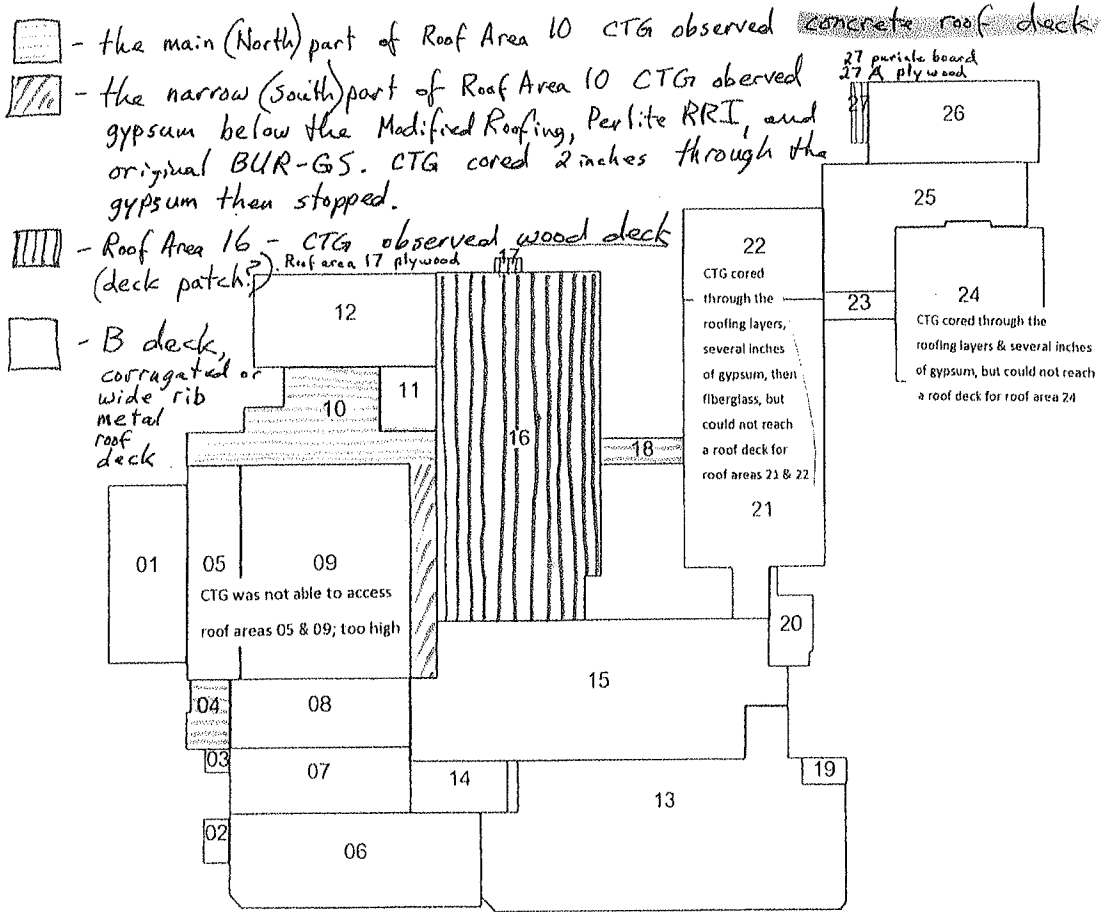 - the main (North) part of Roof Area 10 CTG observed concrete roof deck
- the narrow (South) part of Roof Area 10 CTG oberved
gypsum below the Modified Roofing, Perlite RRI, and
original BUR-GS. CTG cored 2 inches through the
gypsum then stopped.
27 puricle board
27 A plywood
- Roof Area 16 - CTG observed wood deck
(deck patch?)
Roof area 17 plywood
- B deck,
corrugated or
wide rib
metal
roof
deck
27
26
25
17
22
CTG cored
through the
roofing layers,
several inches
of gypsum, then
fiberglass, but
could not reach
a roof deck for
roof areas 21 & 22
21
23
24
CTG cored through the
roofing layers & several inches
of gypsum, but could not reach
a roof deck for roof area 24
12
11
10
16
18
01
05
09
CTG was not able to access
roof areas 05 & 09; too high
20
15
04
08
03
07
14
19
13
02
06